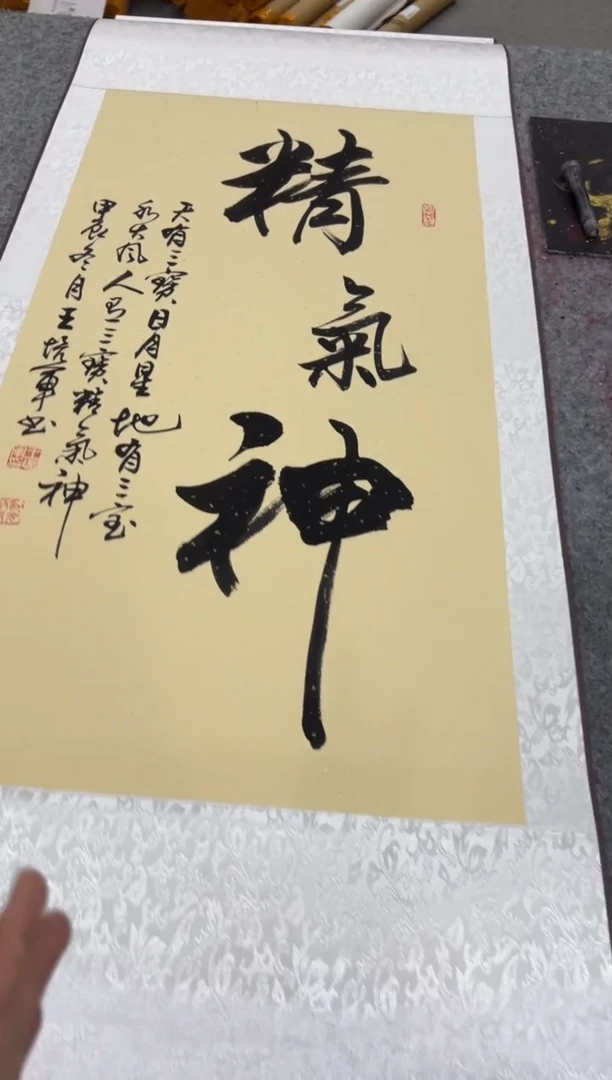 精氣神
天有三寶日月星地有三宝
水火风人有三寶精氣神
甲辰冬月王培軍书